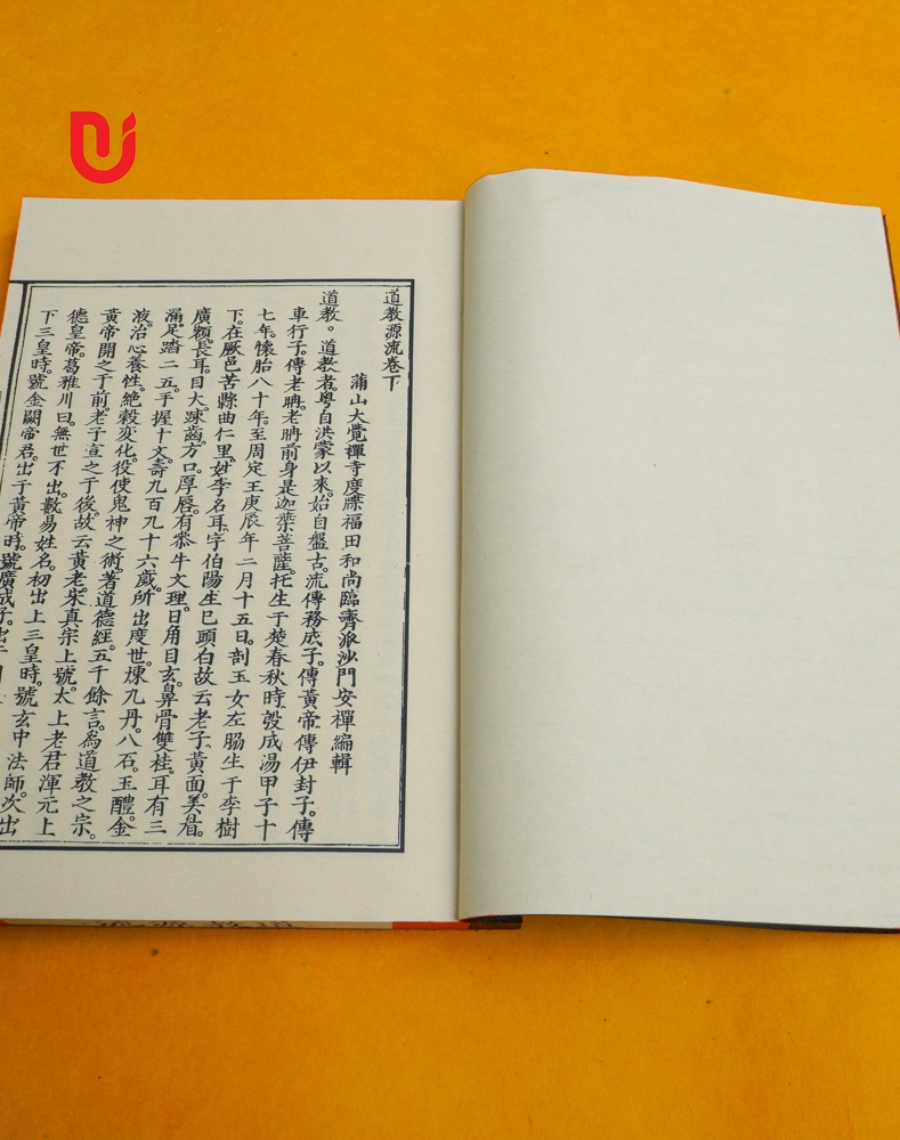 道教源流卷下
蒲山大覺禪寺度牒福田和尚臨齊派沙門安禪編輯
道教。道教者。粵自洪蒙以來。始自盤古。流傳務成子。傳黃帝。傳伊封子。傳
車行子。傳老聃。老聃前身是迦葉菩薩。托生于楚春秋時。殷成湯甲子十
七年。懷胎八十年。至周定王庚辰年二月十五日。剖玉女左脇生于李樹
下。在厥邑苦縣曲仁里。姓李名耳。字伯陽。生巳頭白故云老子。黃面。美眉。
廣顙。長耳。目大。踈齒。方口。厚唇。有參牛文理。日角目玄。鼻骨雙桂。耳有三
漏。足踏二五。手握十文。壽九百九十六歲。所出度世。煉九丹。八石。玉醴。金
液。治心養性。絕穀变化。役使鬼神之術。著道德經。五千餘言。為道教之宗。
黃帝開之于前。老子宣之于後。故云黃老。宋真宗上號。太上老君渾元上
德皇帝。葛雅川曰。無世不出。數易姓名。初出上三皇時。號玄中法師。次出
下三皇時。號金闕帝君。出于黃帝時。號廣成子。出于